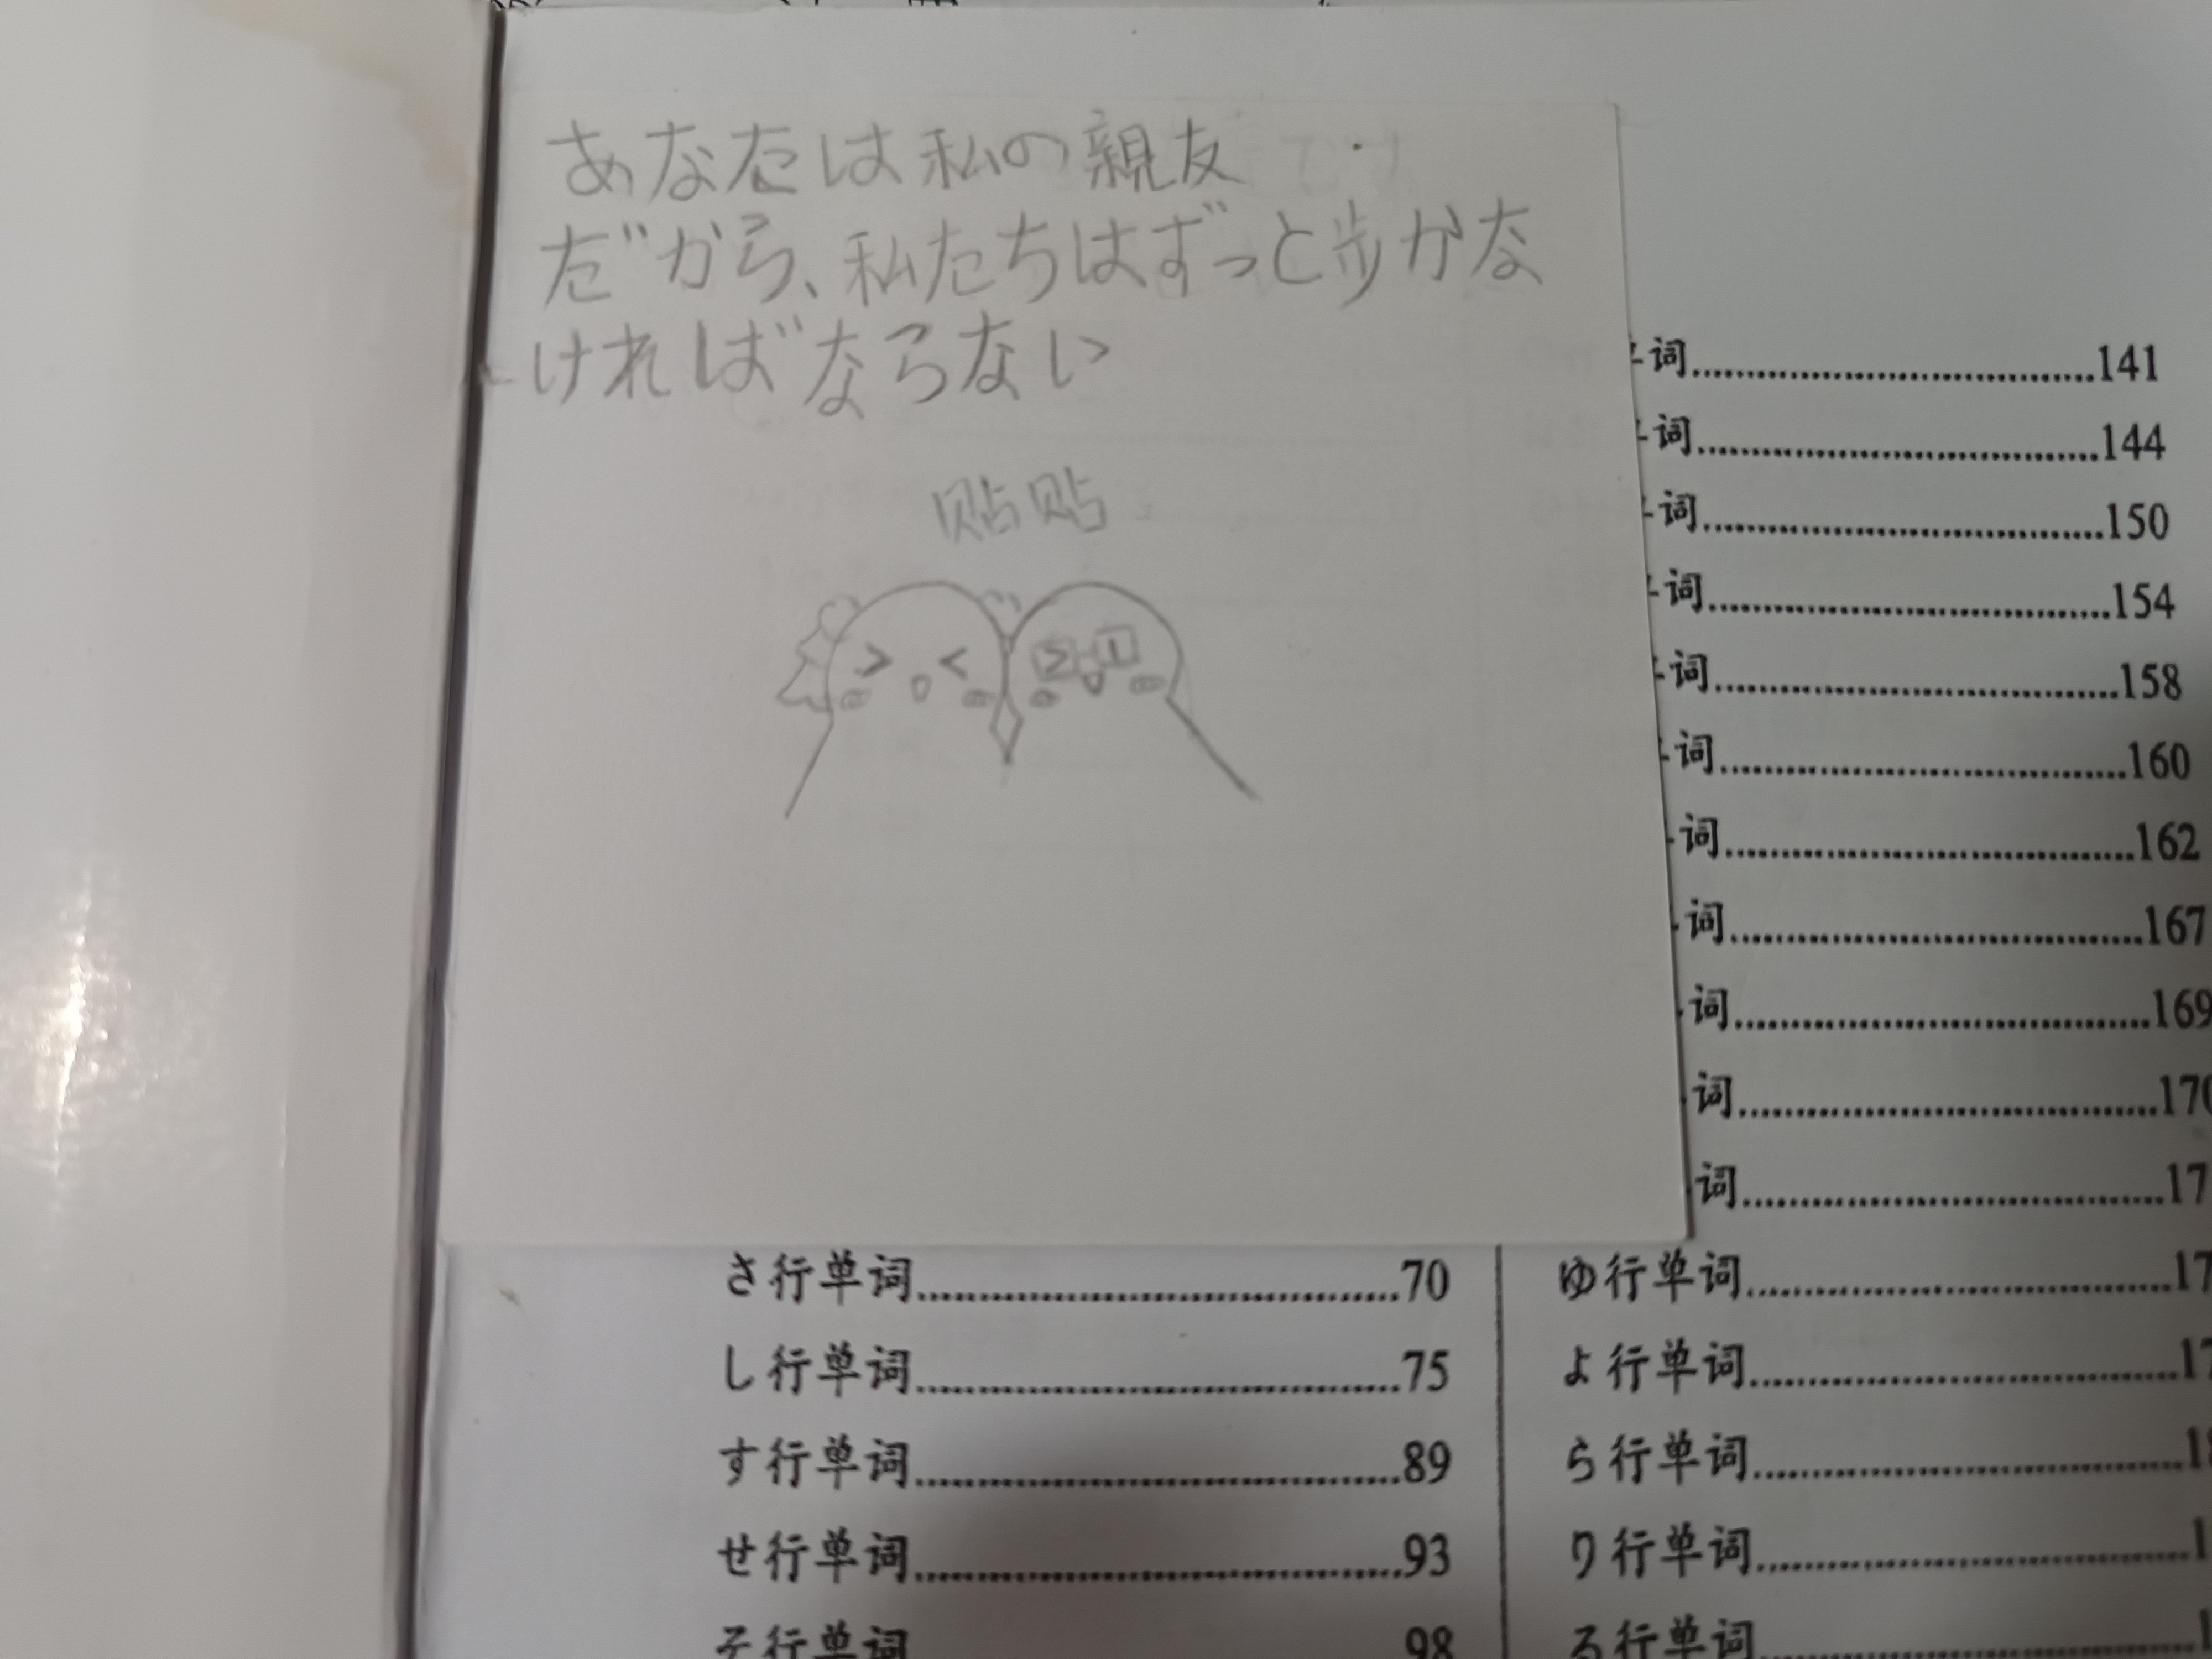 あなたは私の親友
だから、私たちはずっと歩かな
ければならない
贴贴
词 141
词 144
词 150
词 154
词 158
词 160
词 162
词 167
词 169
词
词
さ行单词 70
し行单词 75
す行单词 89
せ行单词 93
そ行单词 98
ゆ行单词
よ行单词
ら行单词
り行单词
る行单词